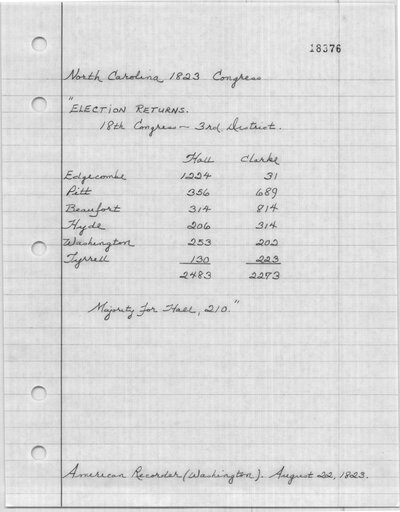 18376
North Carolina 1823 Congress
"ELECTION RETURNS.
18th Congress — 3rd District.
Hall Clarke
Edgecombe 1224 31
Pitt 356 689
Beaufort 314 814
Hyde 206 314
Washington 253 202
Tyrrell 130 223
2483 2273
Majority for Hall, 210."
American Recorder (Washington). August 22, 1823.